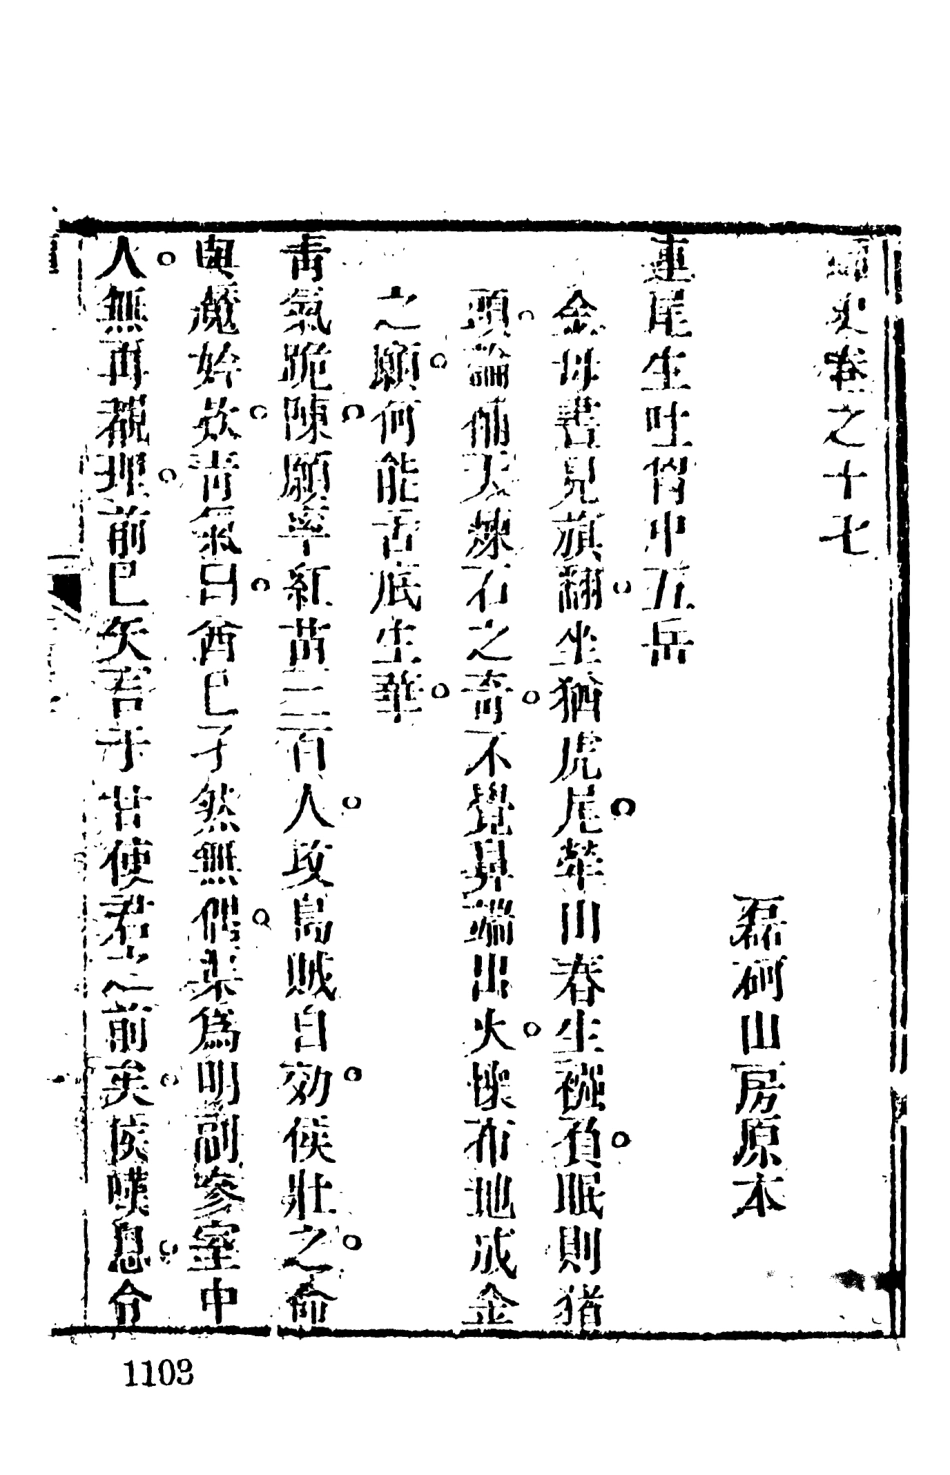 蟫史卷之十七
磊砢山房原本
連尾生吐胷中五岳
金母書見旗翻坐猶虎尾華山春生襁負眠則猪
頭論補天煉石之奇不覺鼻端出火懷布地成金
之願何能舌底生華
青氣跪陳願率紅苗三百人攻島賊自効侯壯之命
與魔妗欸青氣曰酋已孑然無偶業爲明副參室中
人無再覩理前已矢吾于甘使君之前矣侯嘆息令
1103